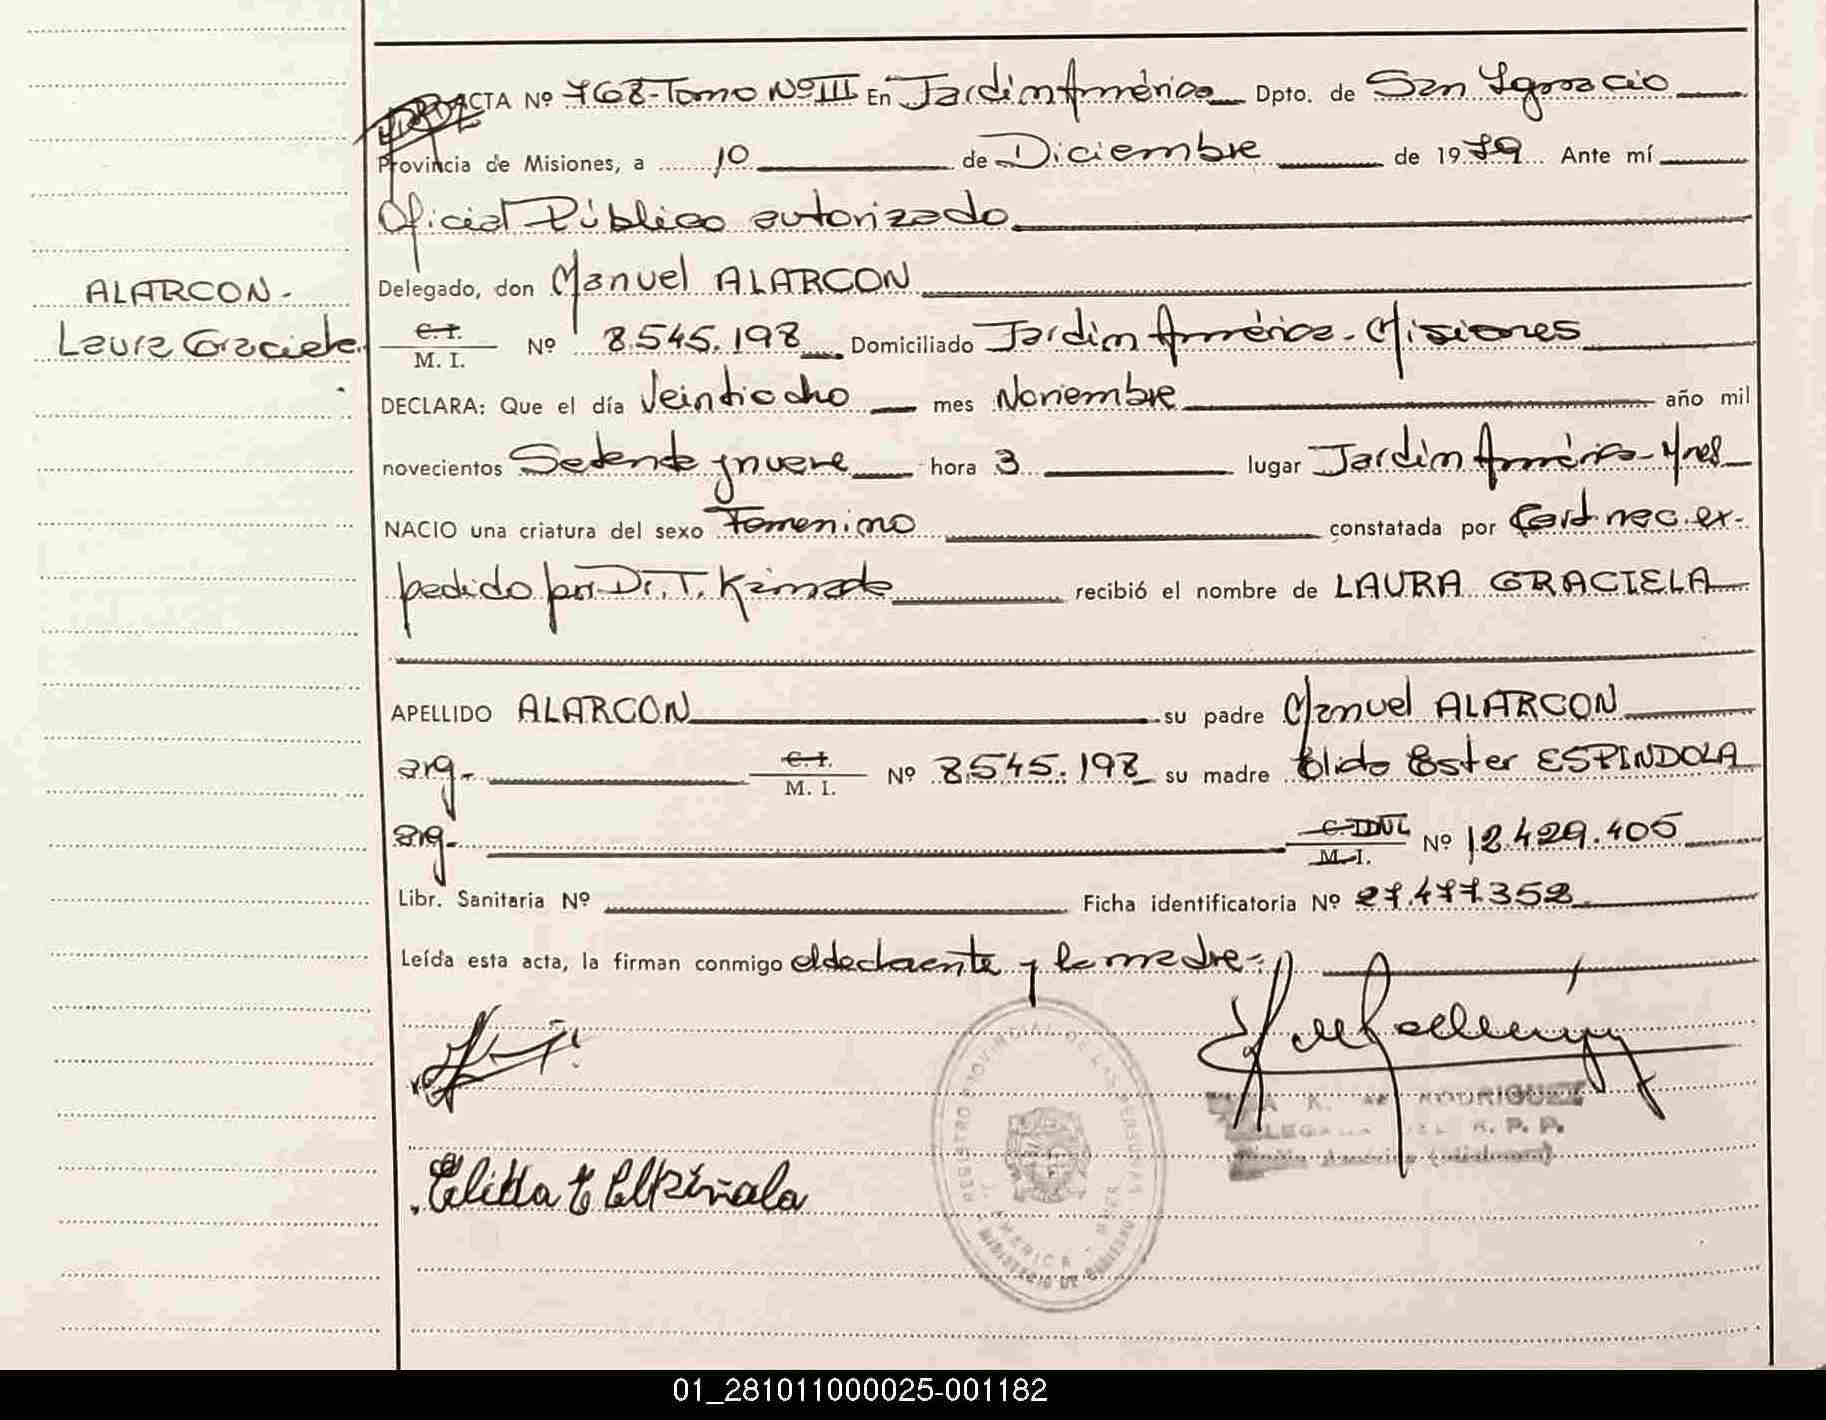 ACTA Nº 768-Tomo Nº III En Jardín América Dpto. de San Ignacio
Provincia de Misiones, a 10 de Diciembre de 1979 Ante mí
Oficial Público autorizado
Delegado, don Manuel ALARCON
ALARCON-
Laura Graciela
C. I.
M. I. Nº 8.545.198 Domiciliado Jardín América - Misiones
DECLARA: Que el día veintiocho mes Noviembre año mil
novecientos Setenta y nueve hora 3 lugar Jardín América - Mnes
NACIO una criatura del sexo Femenino constatada por Cert. nac. ex-
pedido por Dr. T. recibió el nombre de LAURA GRACIELA
APELLIDO ALARCON su padre Manuel ALARCON
arg- C. I.
M. I. Nº 8.545.198 su madre Elida Ester ESPINDOLA
arg- M. I. Nº 12.429.405
Libr. Sanitaria Nº Ficha identificatoria Nº 27.477.352
Leída esta acta, la firman conmigo el declarante y la madre-
REGISTRO PROVINCIAL DE LAS PERSONAS
AMERICA - MNES
MINISTERIO DE GOBIERNO
RODRIGUEZ
R. P. P.
América (Misiones)
Elida E
01_281011000025-001182